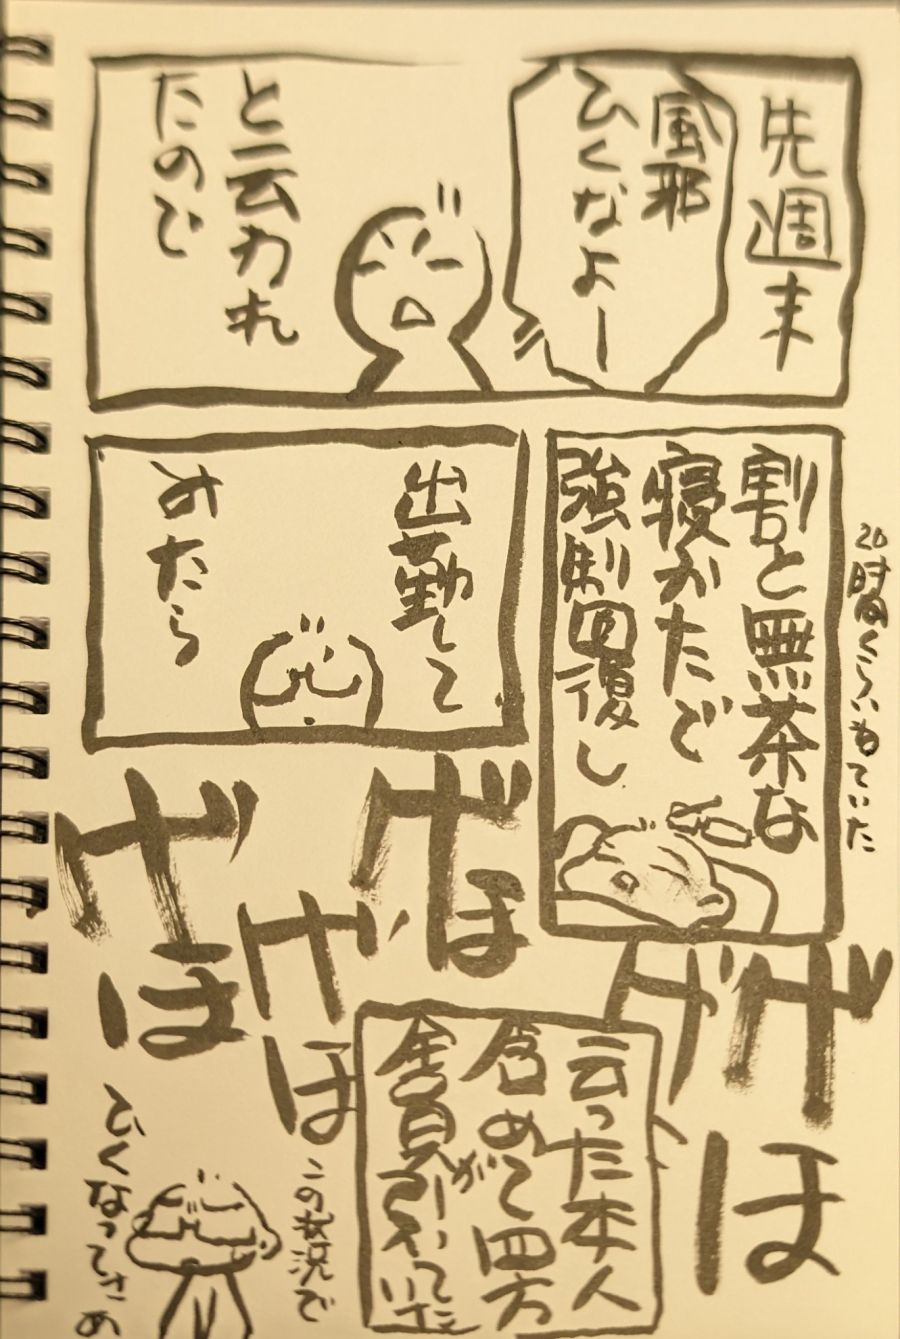 先週末
風邪
ひくなよー
と云われ
たので
割と無茶な
寝かたで
強制回復し
20時間くらいもていた
出勤して
みたら
げほ
げほ
げほ
げげほ
云った本人
含めて四方
全員が引いていた
この状況で
ひくなってさめ